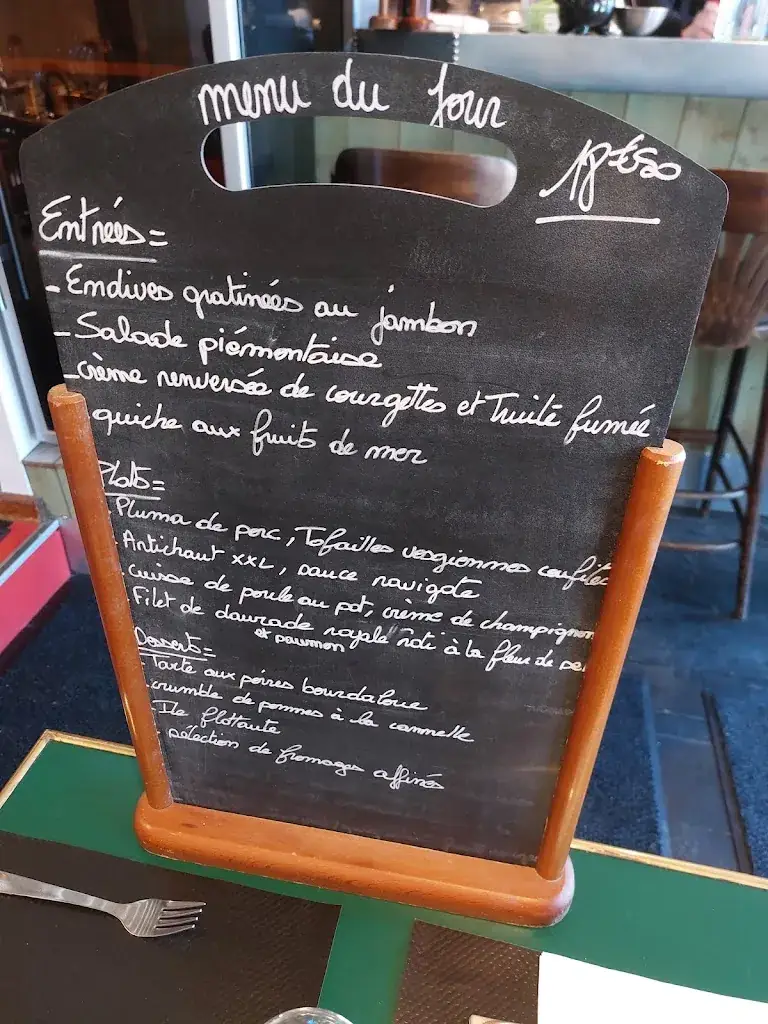 menu du jour
18€50
Entrées=
- Endives gratinées au jambon
- Salade piémontaise
- crème renversée de courgettes et Truite fumée
quiche aux fruits de mer
Plats=
. Pluma de porc, Tofailles vosgiennes confites
. Artichaut XXL, sauce ravigote
. cuisse de poule au pot, crème de champignon
. Filet de daurade royale rôti à la fleur de sel
et saumon
Desserts=
. Tarte aux poires bourdaloue
. crumble de pommes à la cannelle
. Ile flottante
. sélection de fromages affinés